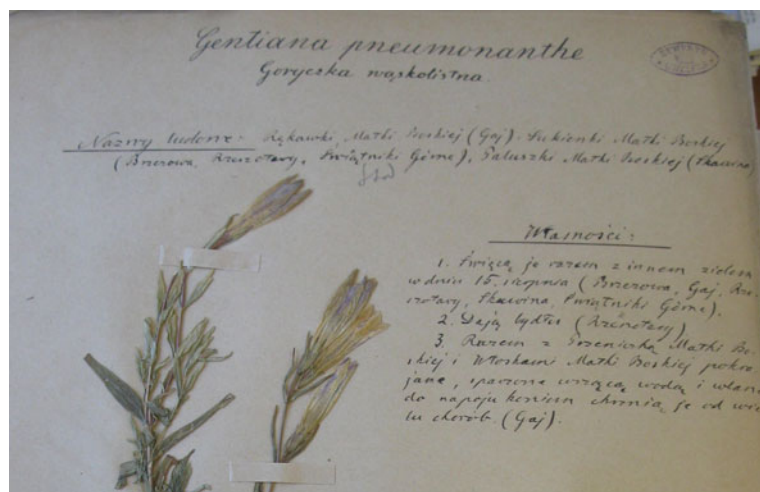 Gentiana pneumonanthe
Goryczka wąskolistna
Nazwy ludowe: Rękawki Matki Boskiej (Gaj). Sukienki Matki Boskiej
(Brzezowa, Rzeszotary, Świątniki Górne), Paluszki Matki Boskiej (Skawina)
Własności:
1. Święcą je razem z innem zielem
w dniu 15. sierpnia (Brzezowa, Gaj, Rze-
szotary, Skawina, Świątniki Górne).
2. Dają bydłu (Rzeszotary)
3. Razem z Matki Bo-
skiej i Włoskami Matki Boskiej pokra-
jane, sparzone wrzącą wodą i wlane
do napoju koniom chronią je od wie-
lu chorób. (Gaj).